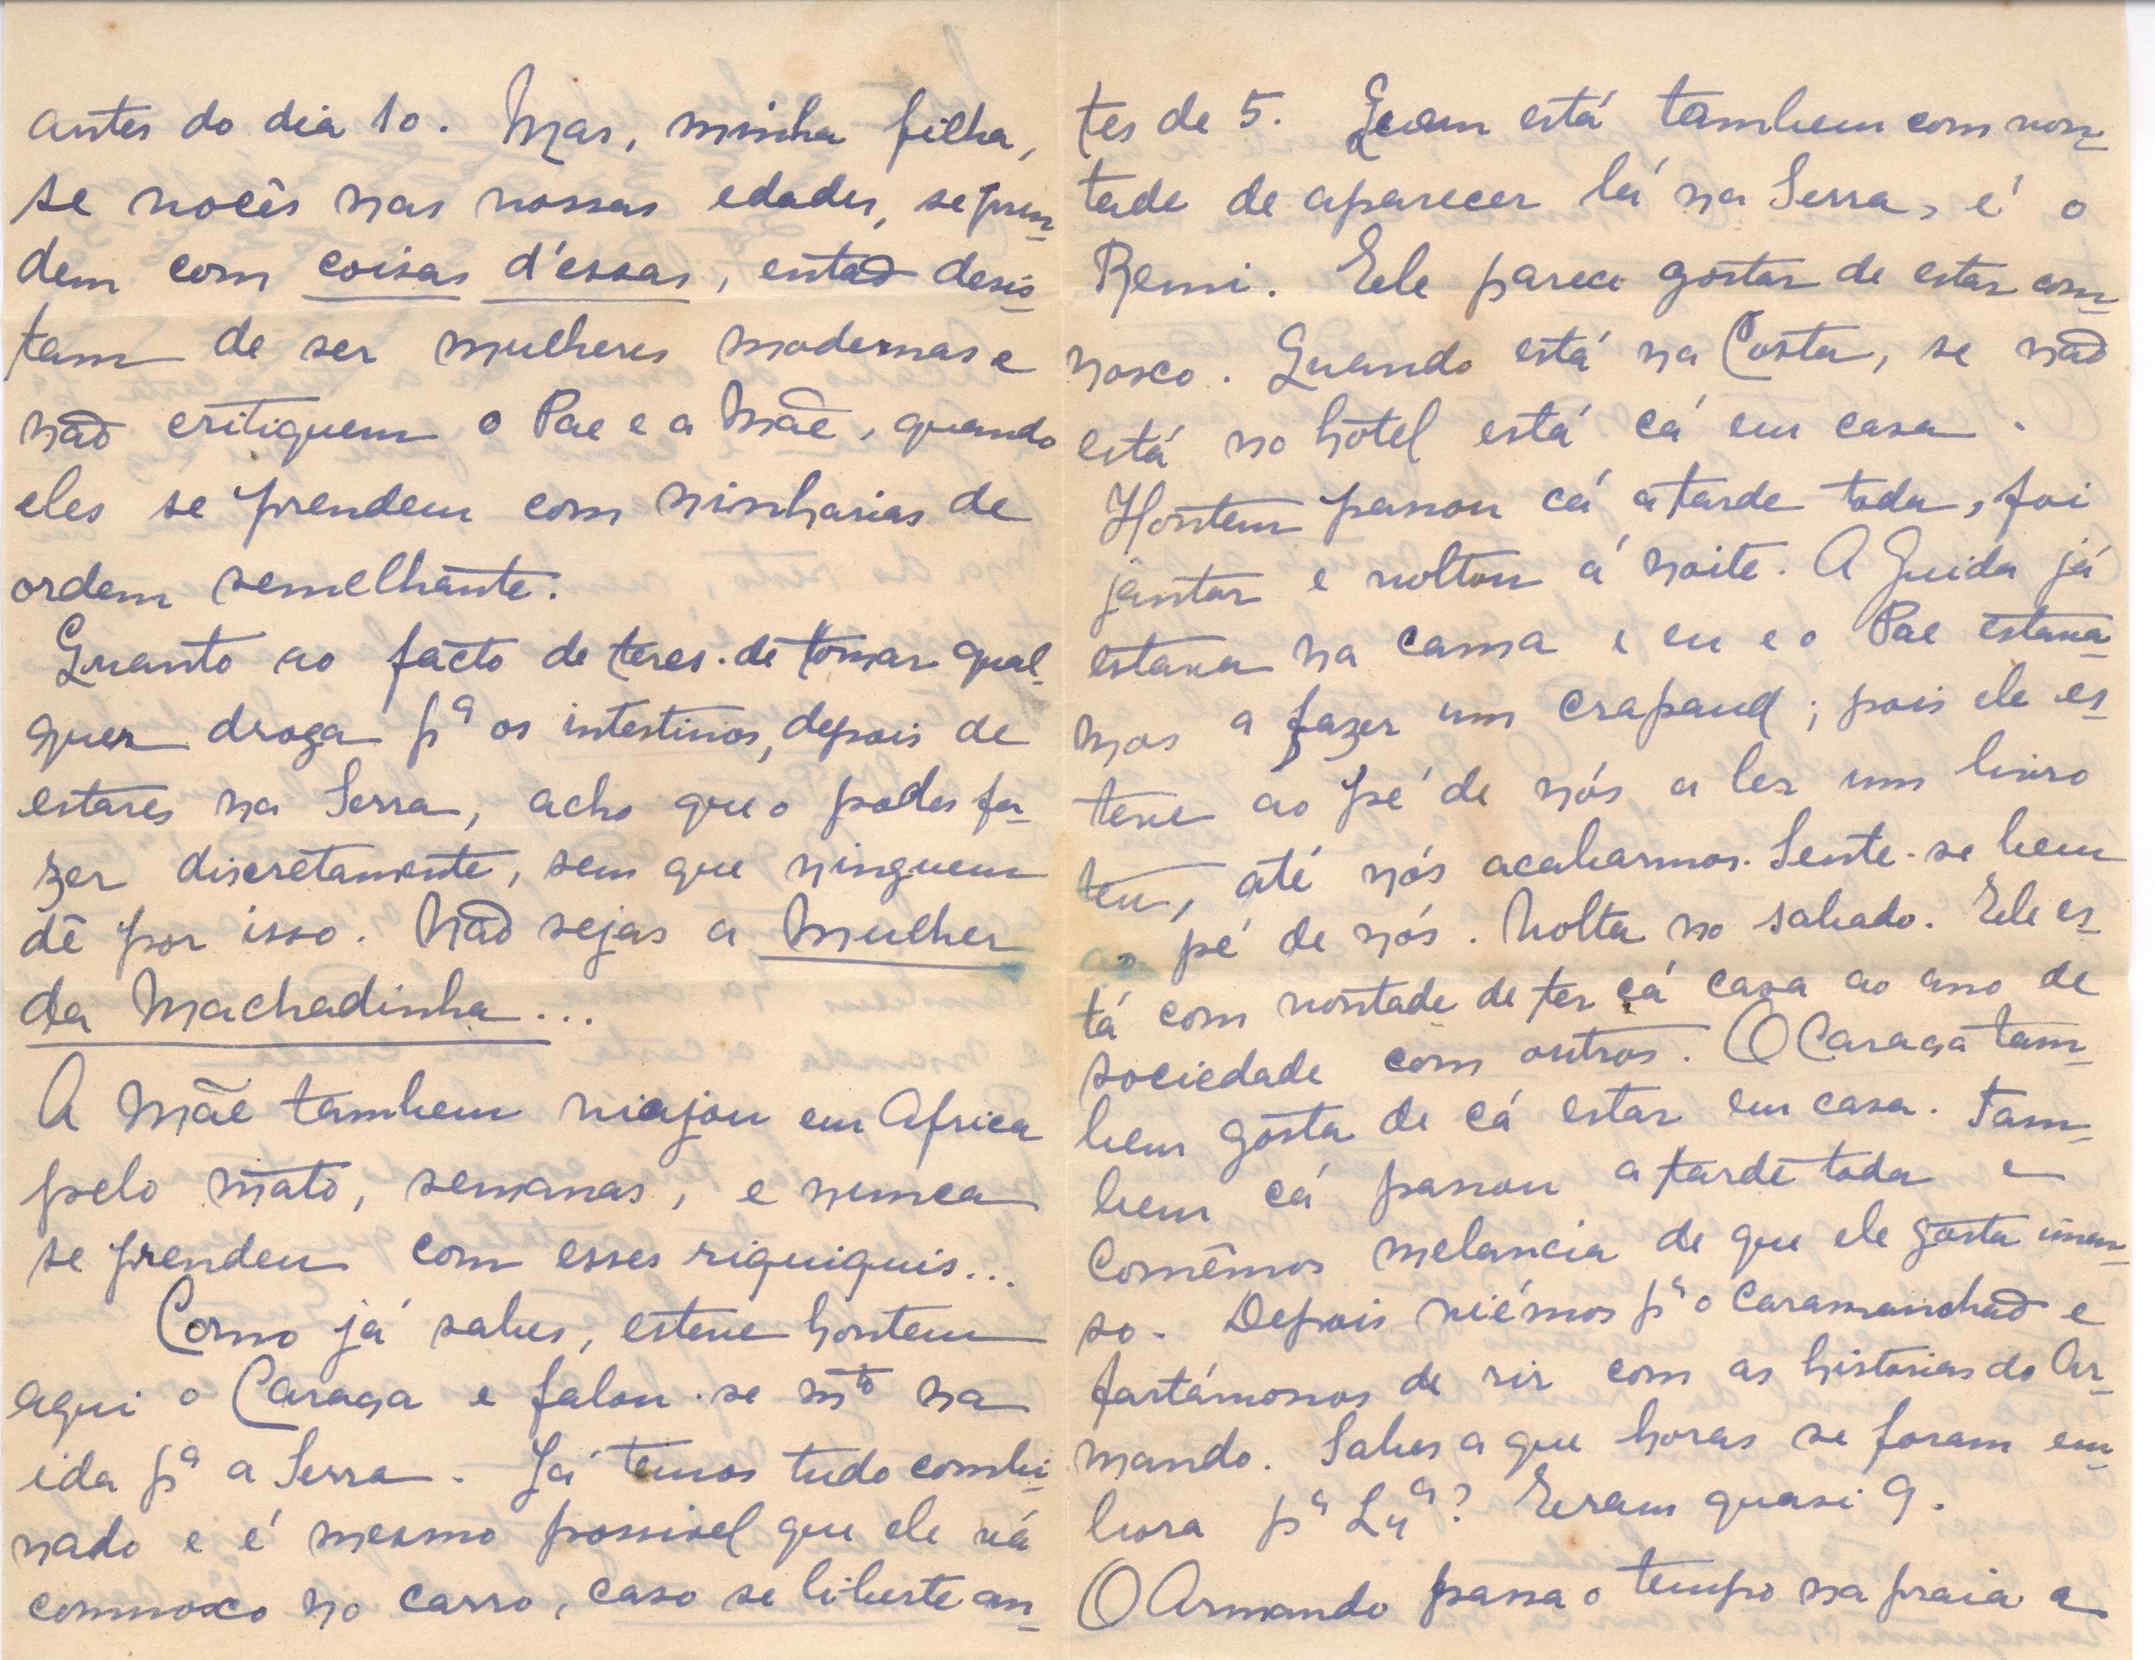 antes do dia 10. Mas, minha filha,
se vocês nas vossas edades, se pren-
dem com coisas d'essas, então desis-
tam de ser mulheres modernas e
não critiquem o Pae e a Mãe, quando
eles se prendem com ninharias de
ordem semelhante.
Quanto ao facto de teres de tomar qual-
quer droga pª os intestinos, depois de
estares na Serra, acho que o podes fa-
zer discretamente, sem que ninguem
dê por isso. Não sejas a Mulher
da Machadinha...
A Mãe tambem viajou em Africa
pelo mato, semanas, e nunca
se prendeu com esses riquiquis...
Como já sabes, esteve hontem
aqui o Caraça e falou-se mto na
ida pª a Serra. Já temos tudo combi-
nado e é mesmo possivel que ele vá
comnosco no carro, caso se liberte an-
tes de 5. Quem está tambem com von-
tade de aparecer lá na Serra, é o
Remi. Ele parece gostar de estar com-
nosco. Quando está na Costa, se não
está no hotel está cá em casa.
Hontem passou cá a tarde toda, foi
jantar e voltou á noite. A Guida já
estava na cama e eu e o Pae estava-
mos a fazer um crapaud; pois ele es-
teve ao pé de nós a ler um livro
teu, até nós acabarmos. Sente-se bem
ao pé de nós. Volta no sabado. Ele es-
tá com vontade de ter cá casa ao ano de
sociedade com outros. O Caraça tam-
bem gosta de cá estar em casa. Tam-
bem cá passou a tarde toda e
comêmos melancia de que ele gosta imen-
so. Depois viémos pª o caramanchão e
fartámonos de rir com as historias do Ar-
mando. Sabes a que horas se foram em-
bora pª Lxª? Eram quasi 9.
O Armando passa o tempo na praia a